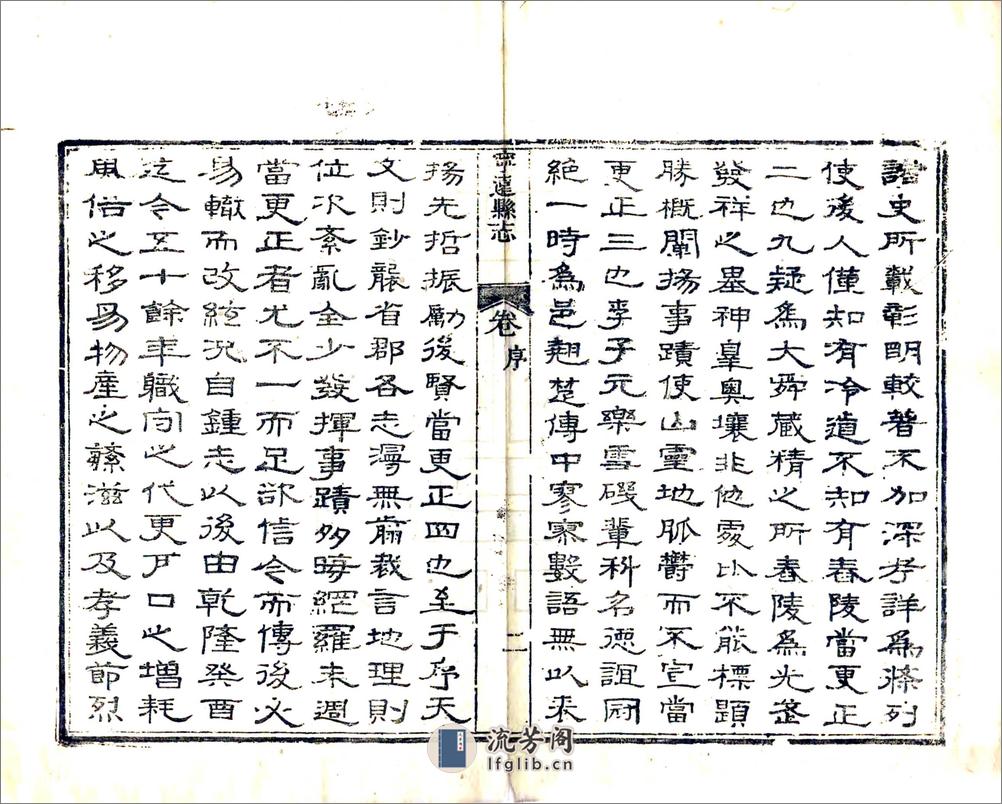 諸史所載彰明較著不加深考詳為條列
使後人僅知有冷道不知有舂陵當更正
二也九疑為大舜藏精之所舂陵為光武
發祥之墨神皐奧壤非他處比不能標題
勝概闡揚事蹟使山靈地脈欝而不宣當
更正三也李子元樂雪磯輩科名德誼冠
絕一時為邑翹楚傳中寥寥數語無以表
寧遠縣志
卷 序
二
揚先哲振勵後賢當更正四也至于序天
文則鈔襲省郡各志漫無翦裁言地理則
位次紊亂全少發揮事蹟多晦網羅未週
當更正者尤不一而足欲信今而傳後必
易轍而改絃況自鍾志以後由乾隆癸酉
迄今五十餘年職向之代更戶口之增耗
風俗之移易物產之蕃滋以及孝義節烈
流芳阁
lfglib.cn